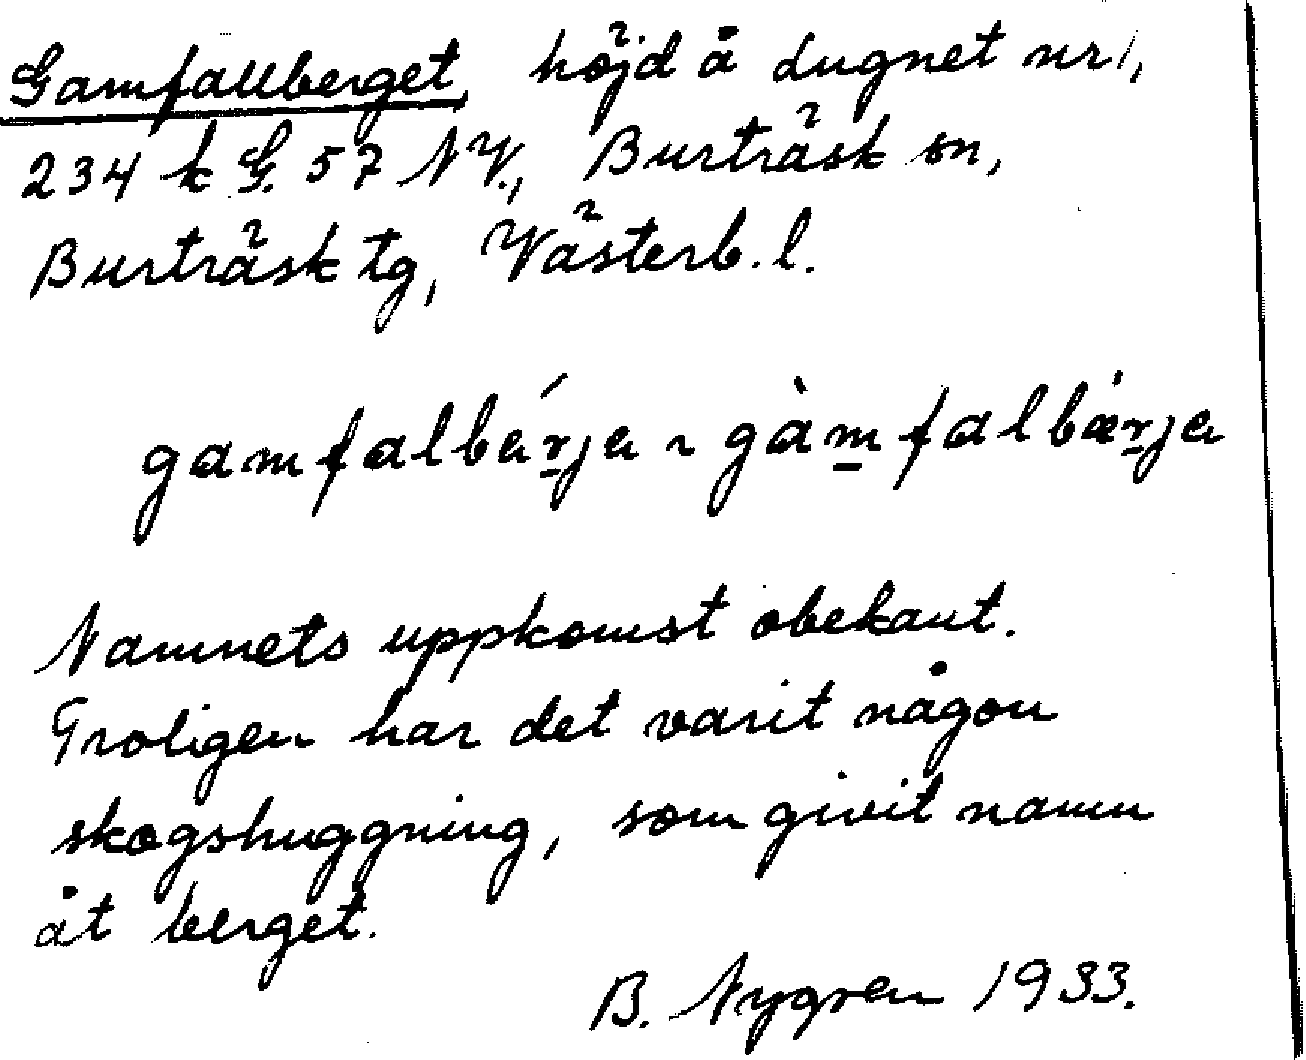 Gamfallberget, höjd å Lugnet nr 1,
234 k G. 57 NV., Burträsk sn,
Burträsk tg, Västerb. l.
gamfalbǽrjɐ ~ gàmfalbærjɐ
Namnets uppkomst obekant.
Troligen har det varit någon
skogshuggning, som givit namn
åt berget.
B. Nygren 1933.